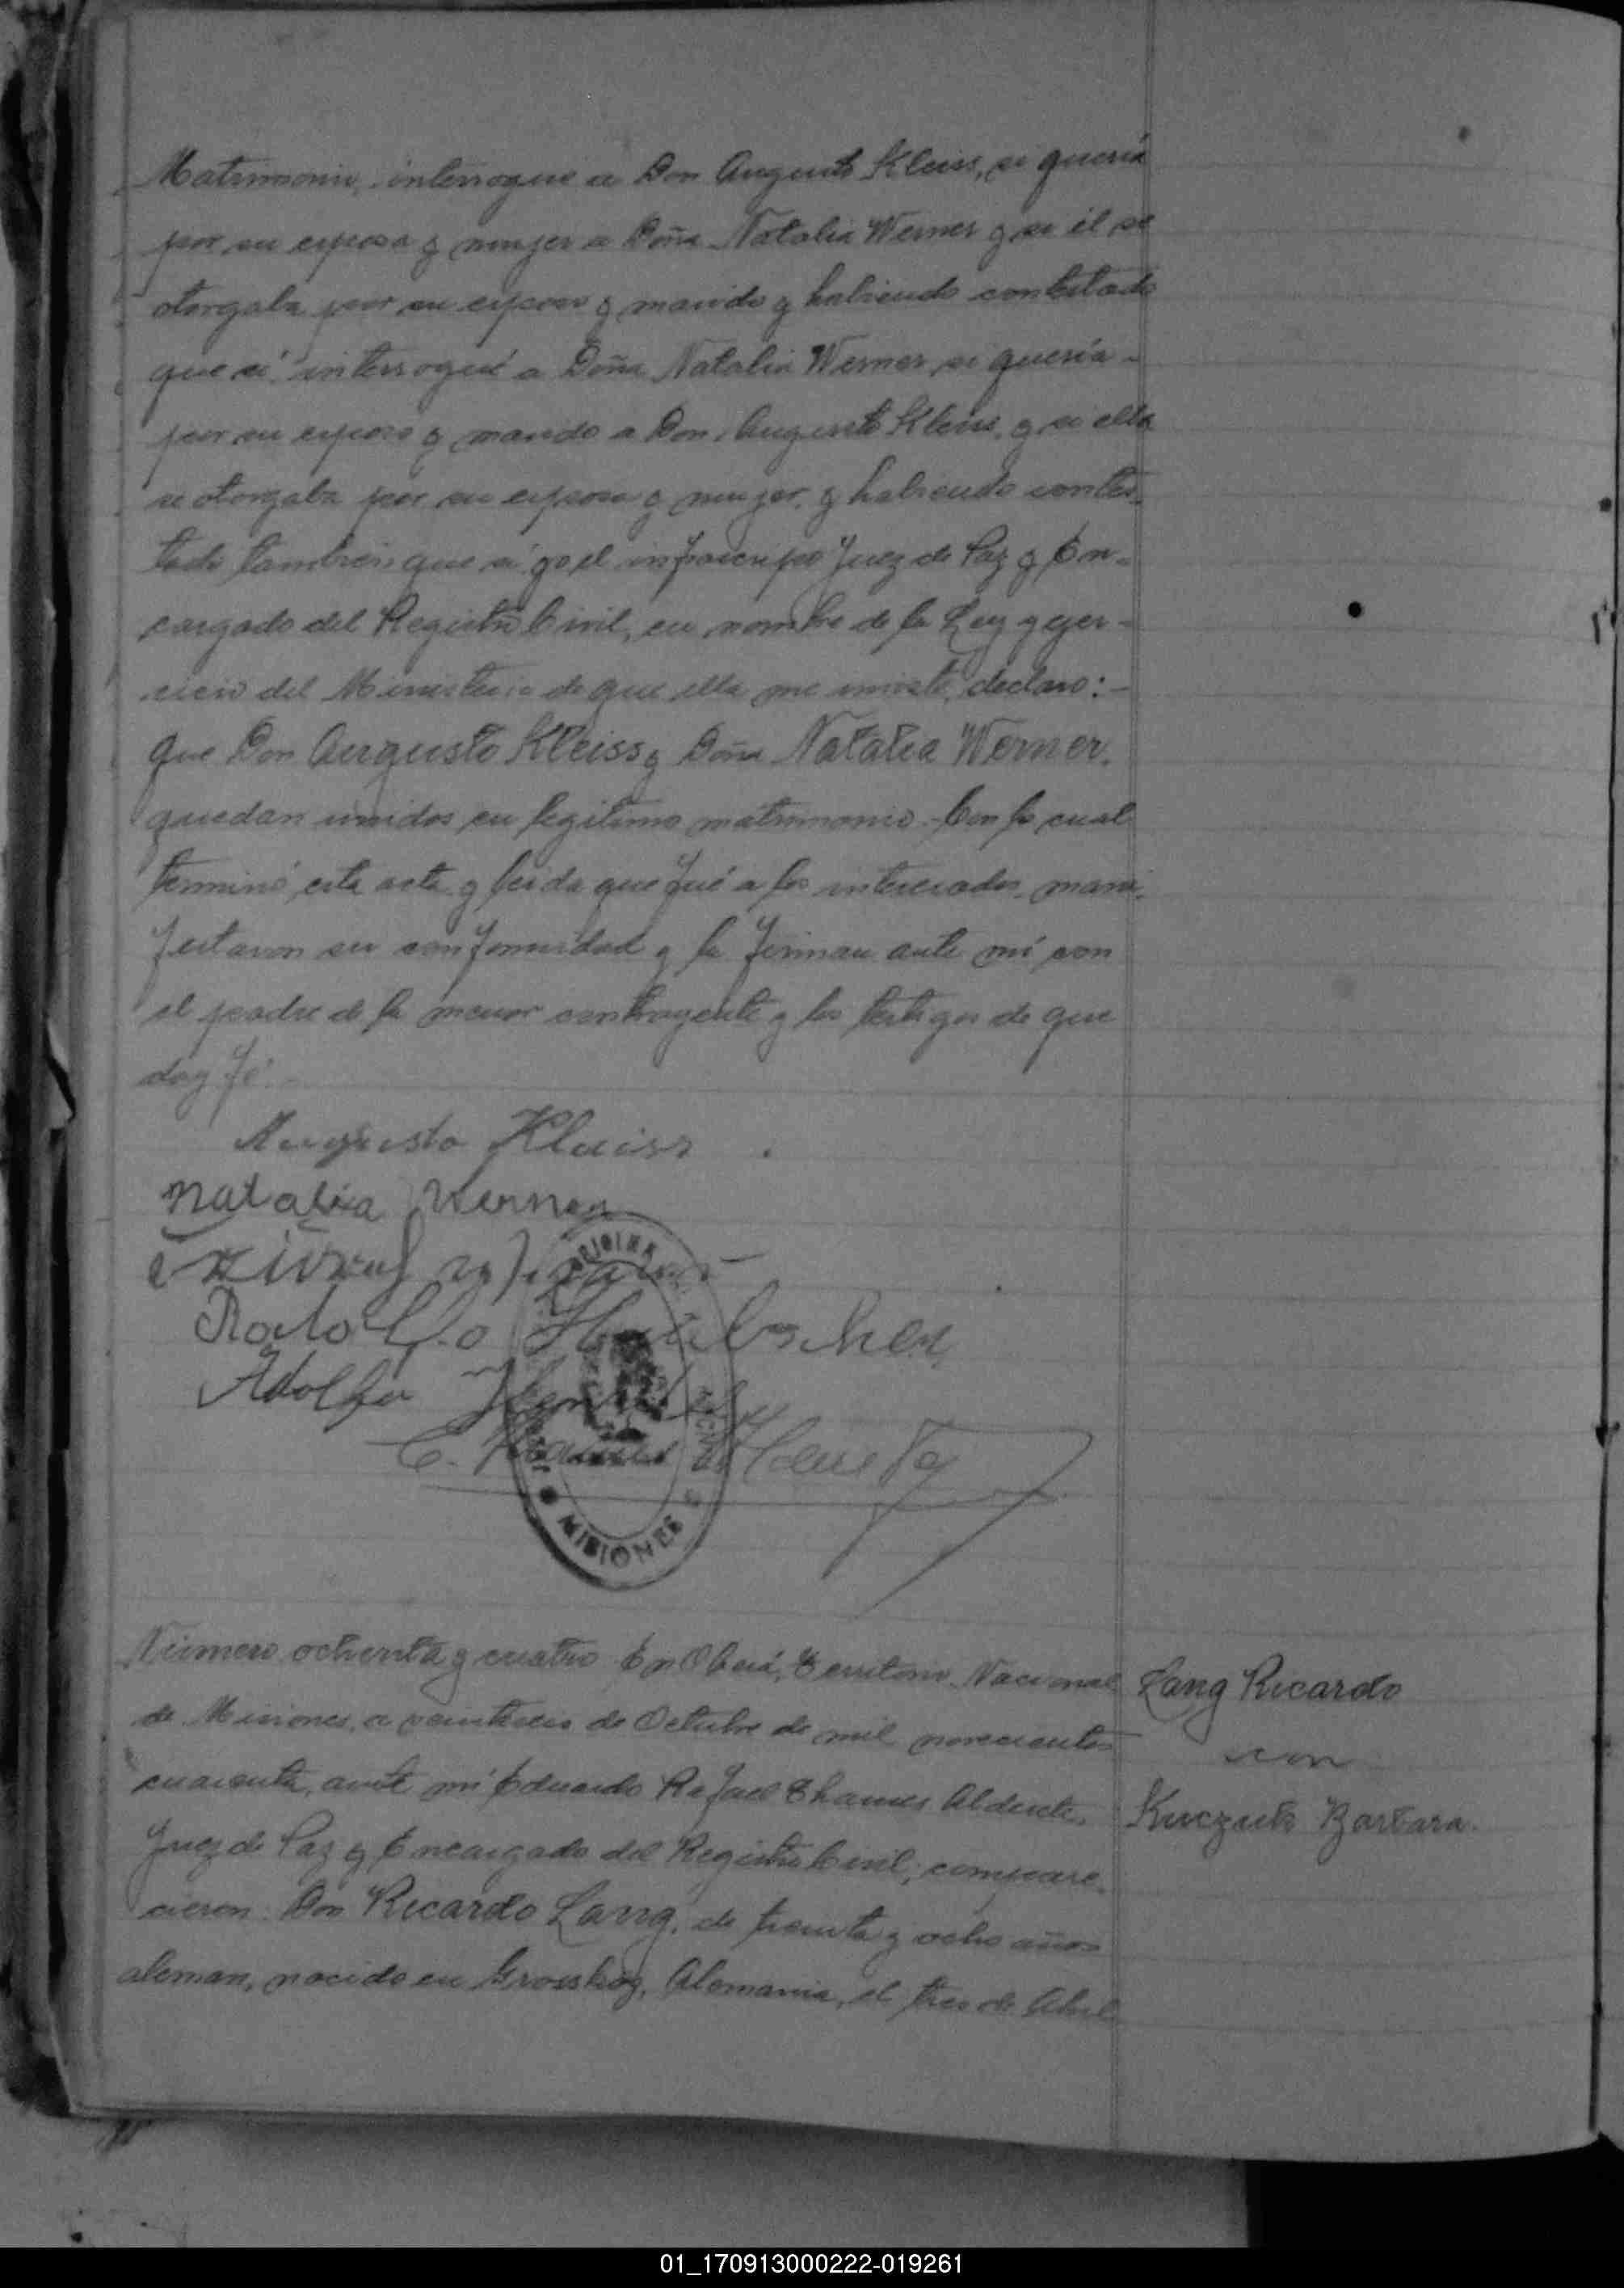 Matrimonio, interrogué a Don Augusto Kleiss, si quería
por su esposa y mujer a Doña Natalia Werner y si él se
otorgaba por su esposo y marido y habiendo contestado
que sí interrogué a Doña Natalia Werner, si quería -
por su esposo y marido a Don Augusto Kleiss, y si ella
se otorgaba por su esposa y mujer, y habiendo contes-
tado también que sí yo el infrascripto Juez de Paz y En-
cargado del Registro Civil, en nombre de la Ley y ejer-
cicio del Ministerio de que ella me inviste, declaro: -
que Don Augusto Kleiss y Doña Natalia Werner,
quedan unidos en legítimo matrimonio. Con lo cual
terminó esta acta y leida que fué a los interesados, mani-
festaron su conformidad y la firman ante mí con
el padre de la menor contrayente y los testigos de que
doy fé. -
Augusto Kleiss
Natalia Werner
Rodolfo
Adolfo
E.
MISIONES
Número ochenta y cuatro En Oberá, Territorio Nacional
de Misiones, a veintiseis de Octubre de mil novecientos
cuarenta, ante mí Eduardo Rafael Thames Alderete,
Juez de Paz y Encargado del Registro Civil; compare-
cieron: Don Ricardo Lang, de treinta y ocho años
aleman, nacido en Alemania, el tres de Abril
Lang Ricardo
con
Kuczuk Barbara.
01_170913000222-019261